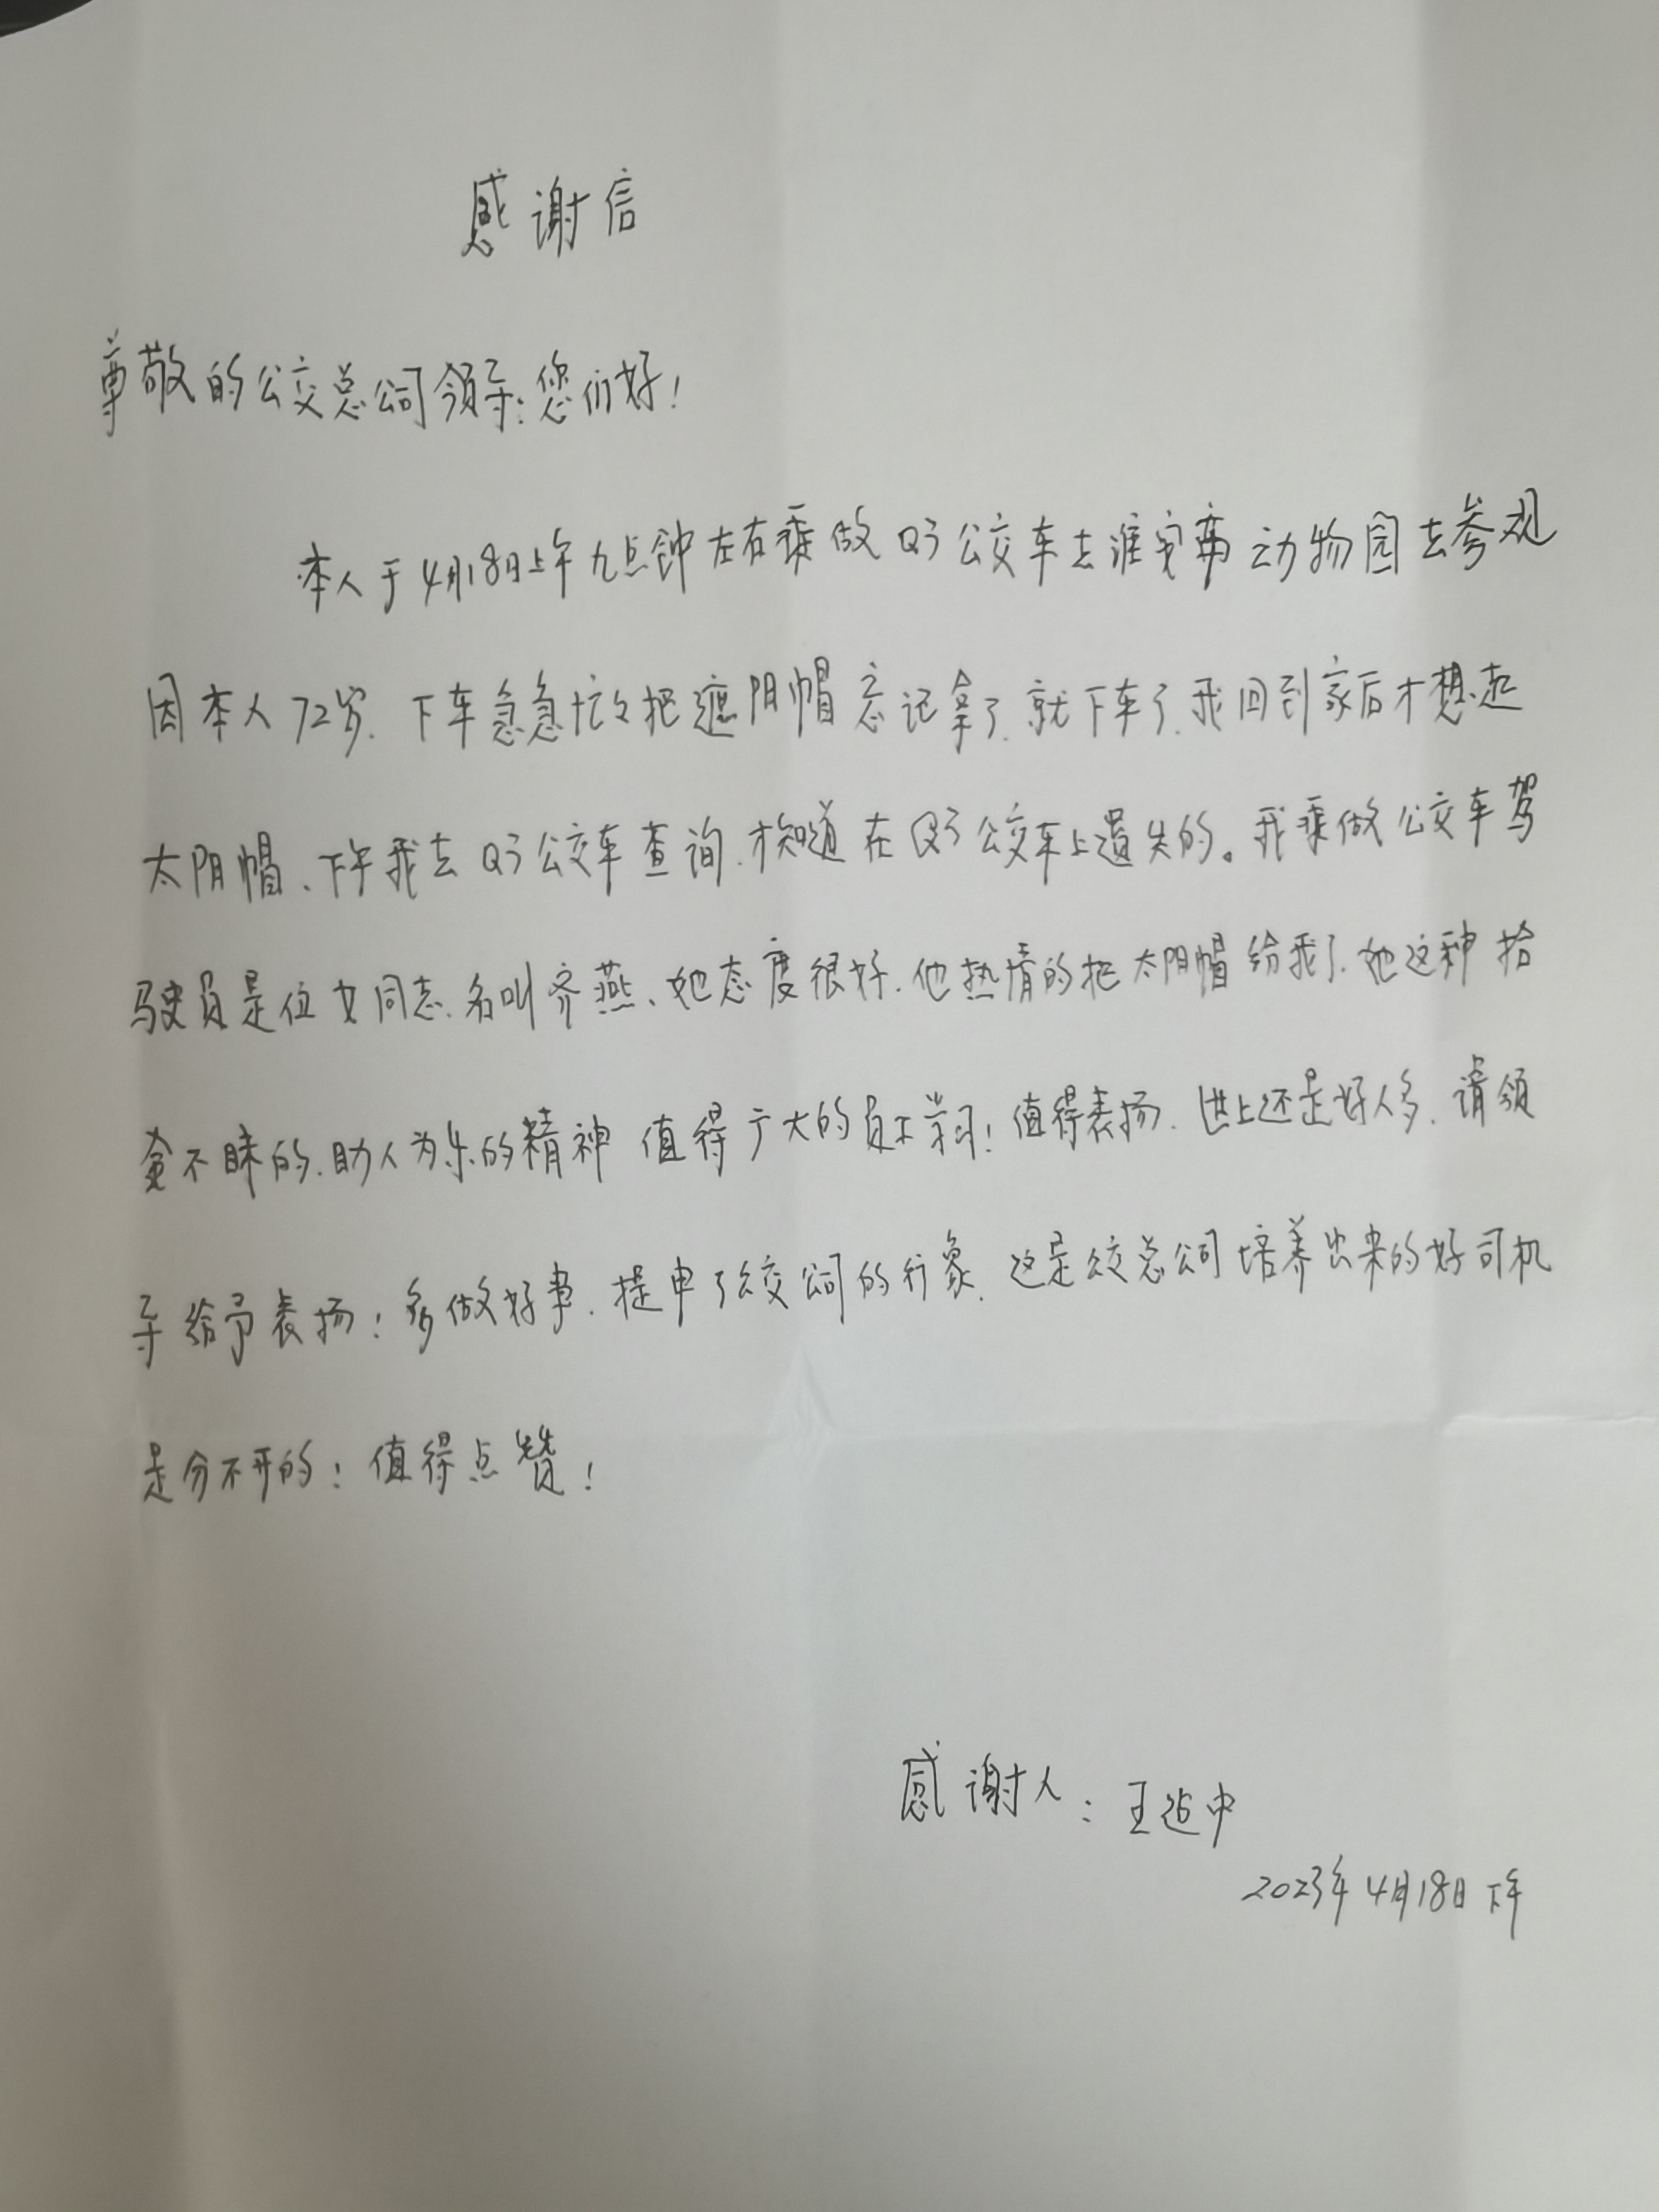 感谢信
尊敬的公交总公司领导：您们好！
本人于4月18日上午九点钟左右乘做Q3公交车去淮安 动物园去参观
因本人72岁.下车急急忙忙把遮阴帽忘记拿了.就下车了.我回到家后才想起
太阳帽、下午我去Q3公交车查询.才知道在Q3公交车上遗失的。我乘做公交车驾
驶员是位女同志.名叫齐燕、她态度很好.他热情的把太阳帽给我了.她这种拾
金不昧的.助人为乐的精神 值得广大的员工学习！值得表扬.世上还是好人多.请领
导给予表扬！多做好事.提申了公交公司的行象.这是公交总公司培养出来的好司机
是分不开的！值得点赞！
感谢人：王 中
2023年4月18日下午